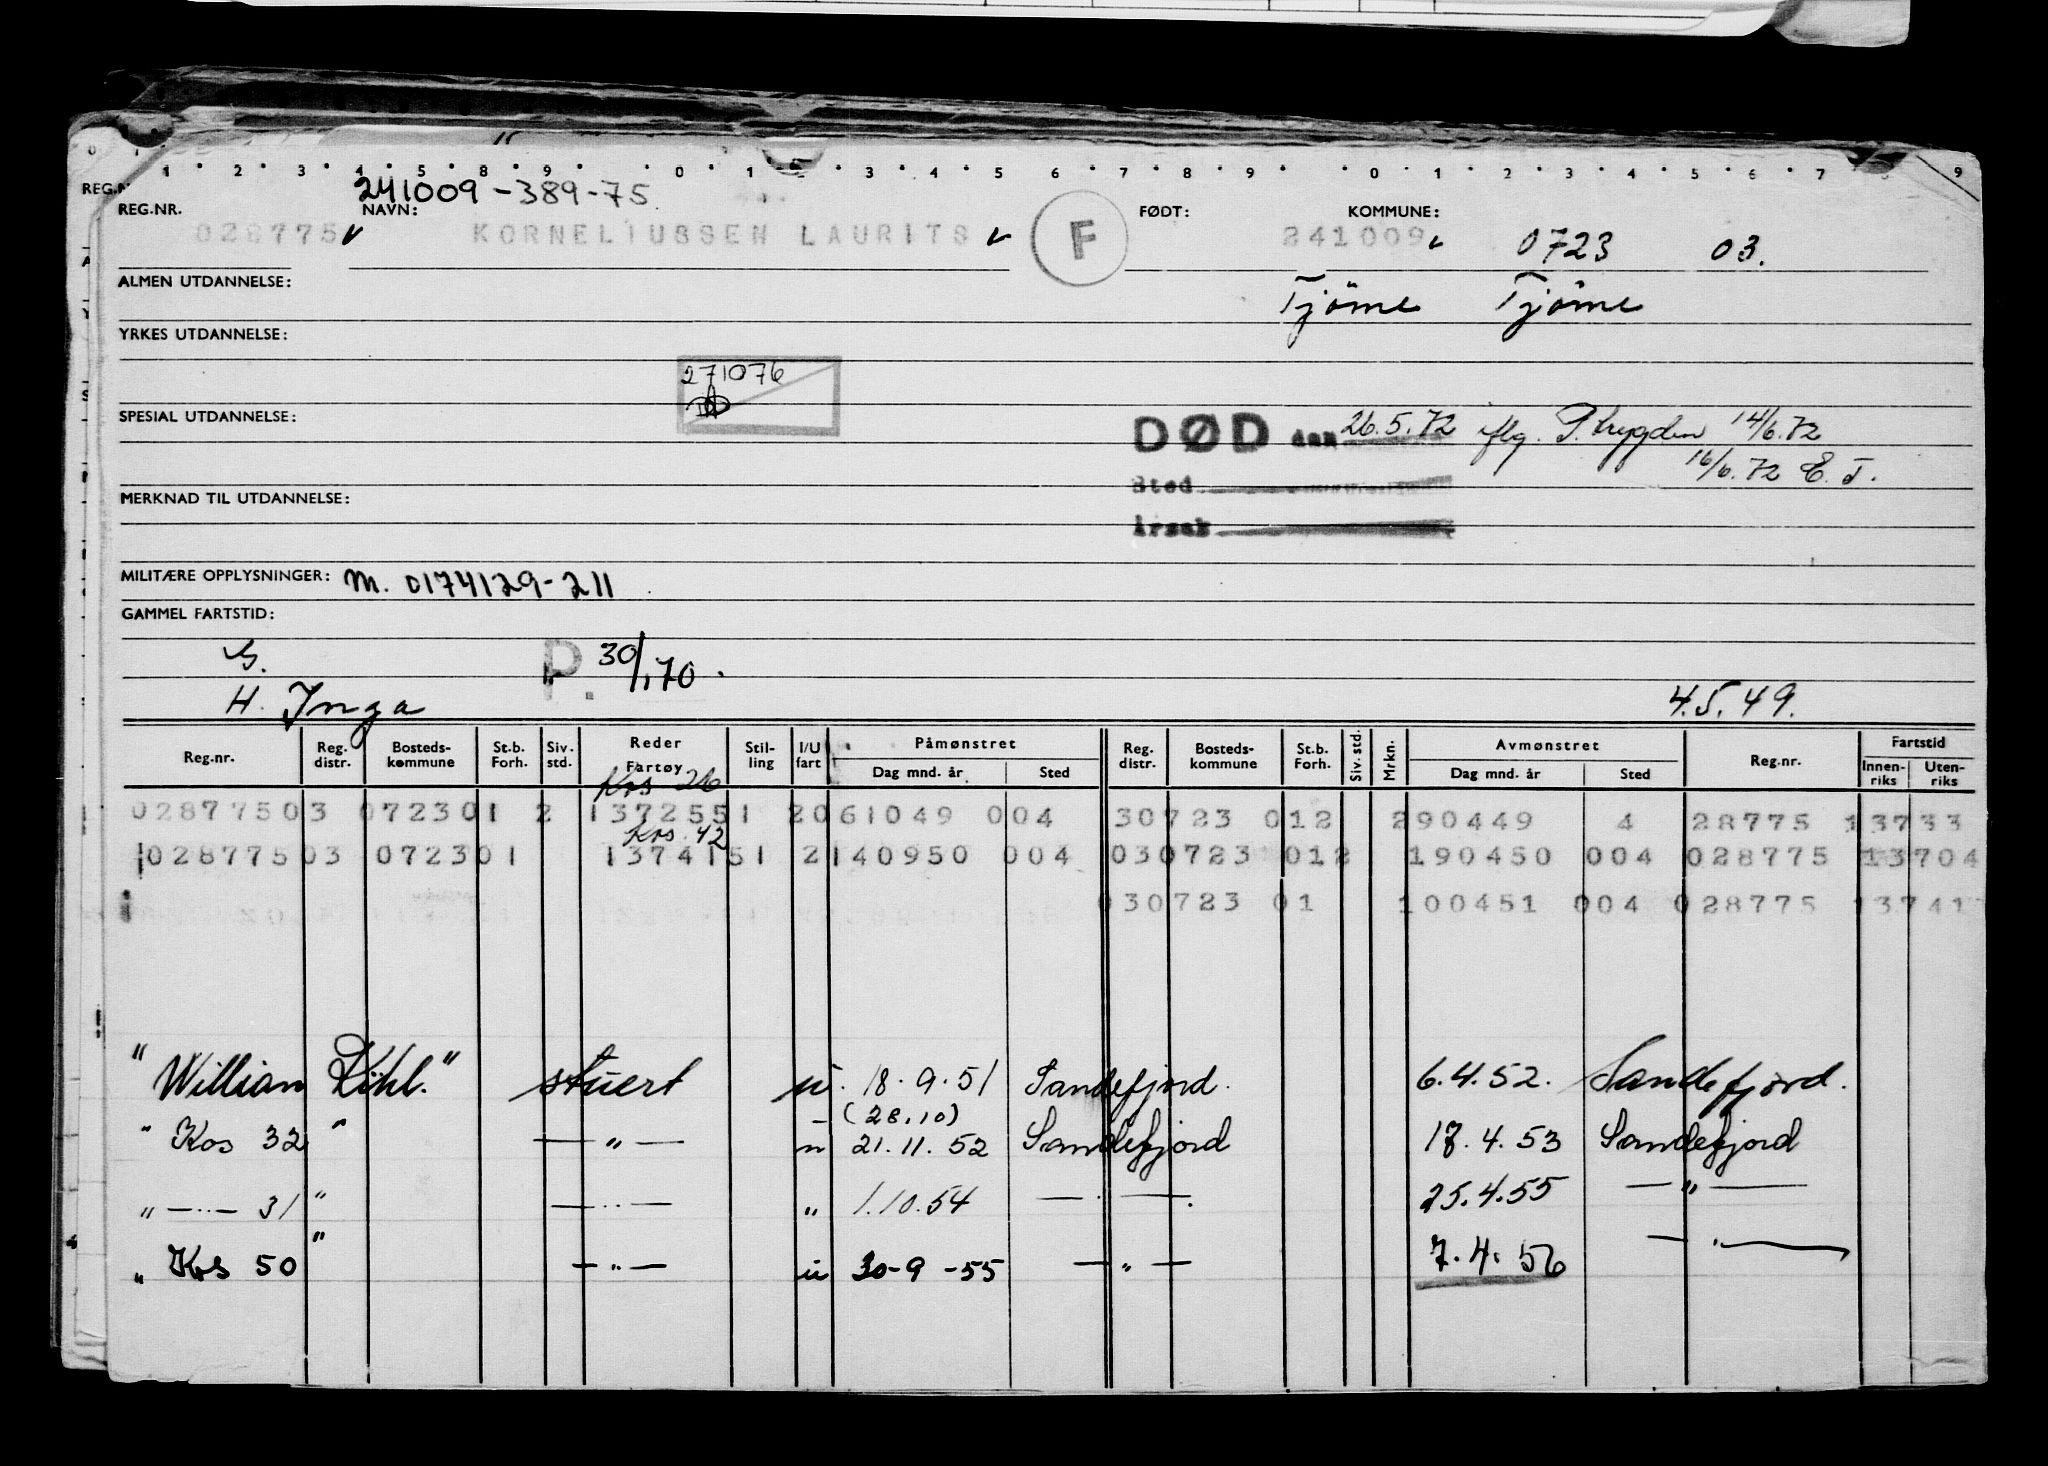 241009-389-75
REG.NR. NAVN: FØDT: KOMMUNE:
028775 KORNELIUSSEN LAURITS F 241009 0723 03.
ALMEN UTDANNELSE: Tjöme Tjöme
YRKES UTDANNELSE:
271076
SPESIAL UTDANNELSE: DØD den 26.5.72 iflg. P. trygden 14/6.72
16/6.72 E. T.
Sted
MERKNAD TIL UTDANNELSE:
Årsak
MILITÆRE OPPLYSNINGER: M. 0174129-211
GAMMEL FARTSTID:
G. P. 30/1.70.
H. Inga 4.5.49.
Reg.nr. Reg. distr. Bosteds-kommune St.b. Forh. Siv. std. Reder Fartøy Stil-ling I/U fart Påmønstret Dag mnd. år Sted Reg. distr. Bosteds-kommune St.b. Forh. Siv. std. Mrkn. Avmønstret Dag mnd. år Sted Reg.nr. Fartstid Innen-riks Uten-riks
Kos 26
02877503 072301 2 1372551 2061049 004 30723 012 290449 4 28775 13733
Kos 42
02877503 072301 1374151 2140950 004 030723 012 190450 004 028775 13704
030723 01 100451 004 028775 13741
"Willian Kihl." stuert u. 18.9.51 Sandefjord. 6.4.52. Sandefjord.
(28.10)
" Kos 32 " — " — u 21.11.52 Sandefjord 17.4.53 Sandefjord
" — " — 31 " — " — " 1.10.54 — " — . 25.4.55 — " —
" Kos 50 " — " — u 30-9-55 — " — 7.4.56 — " —